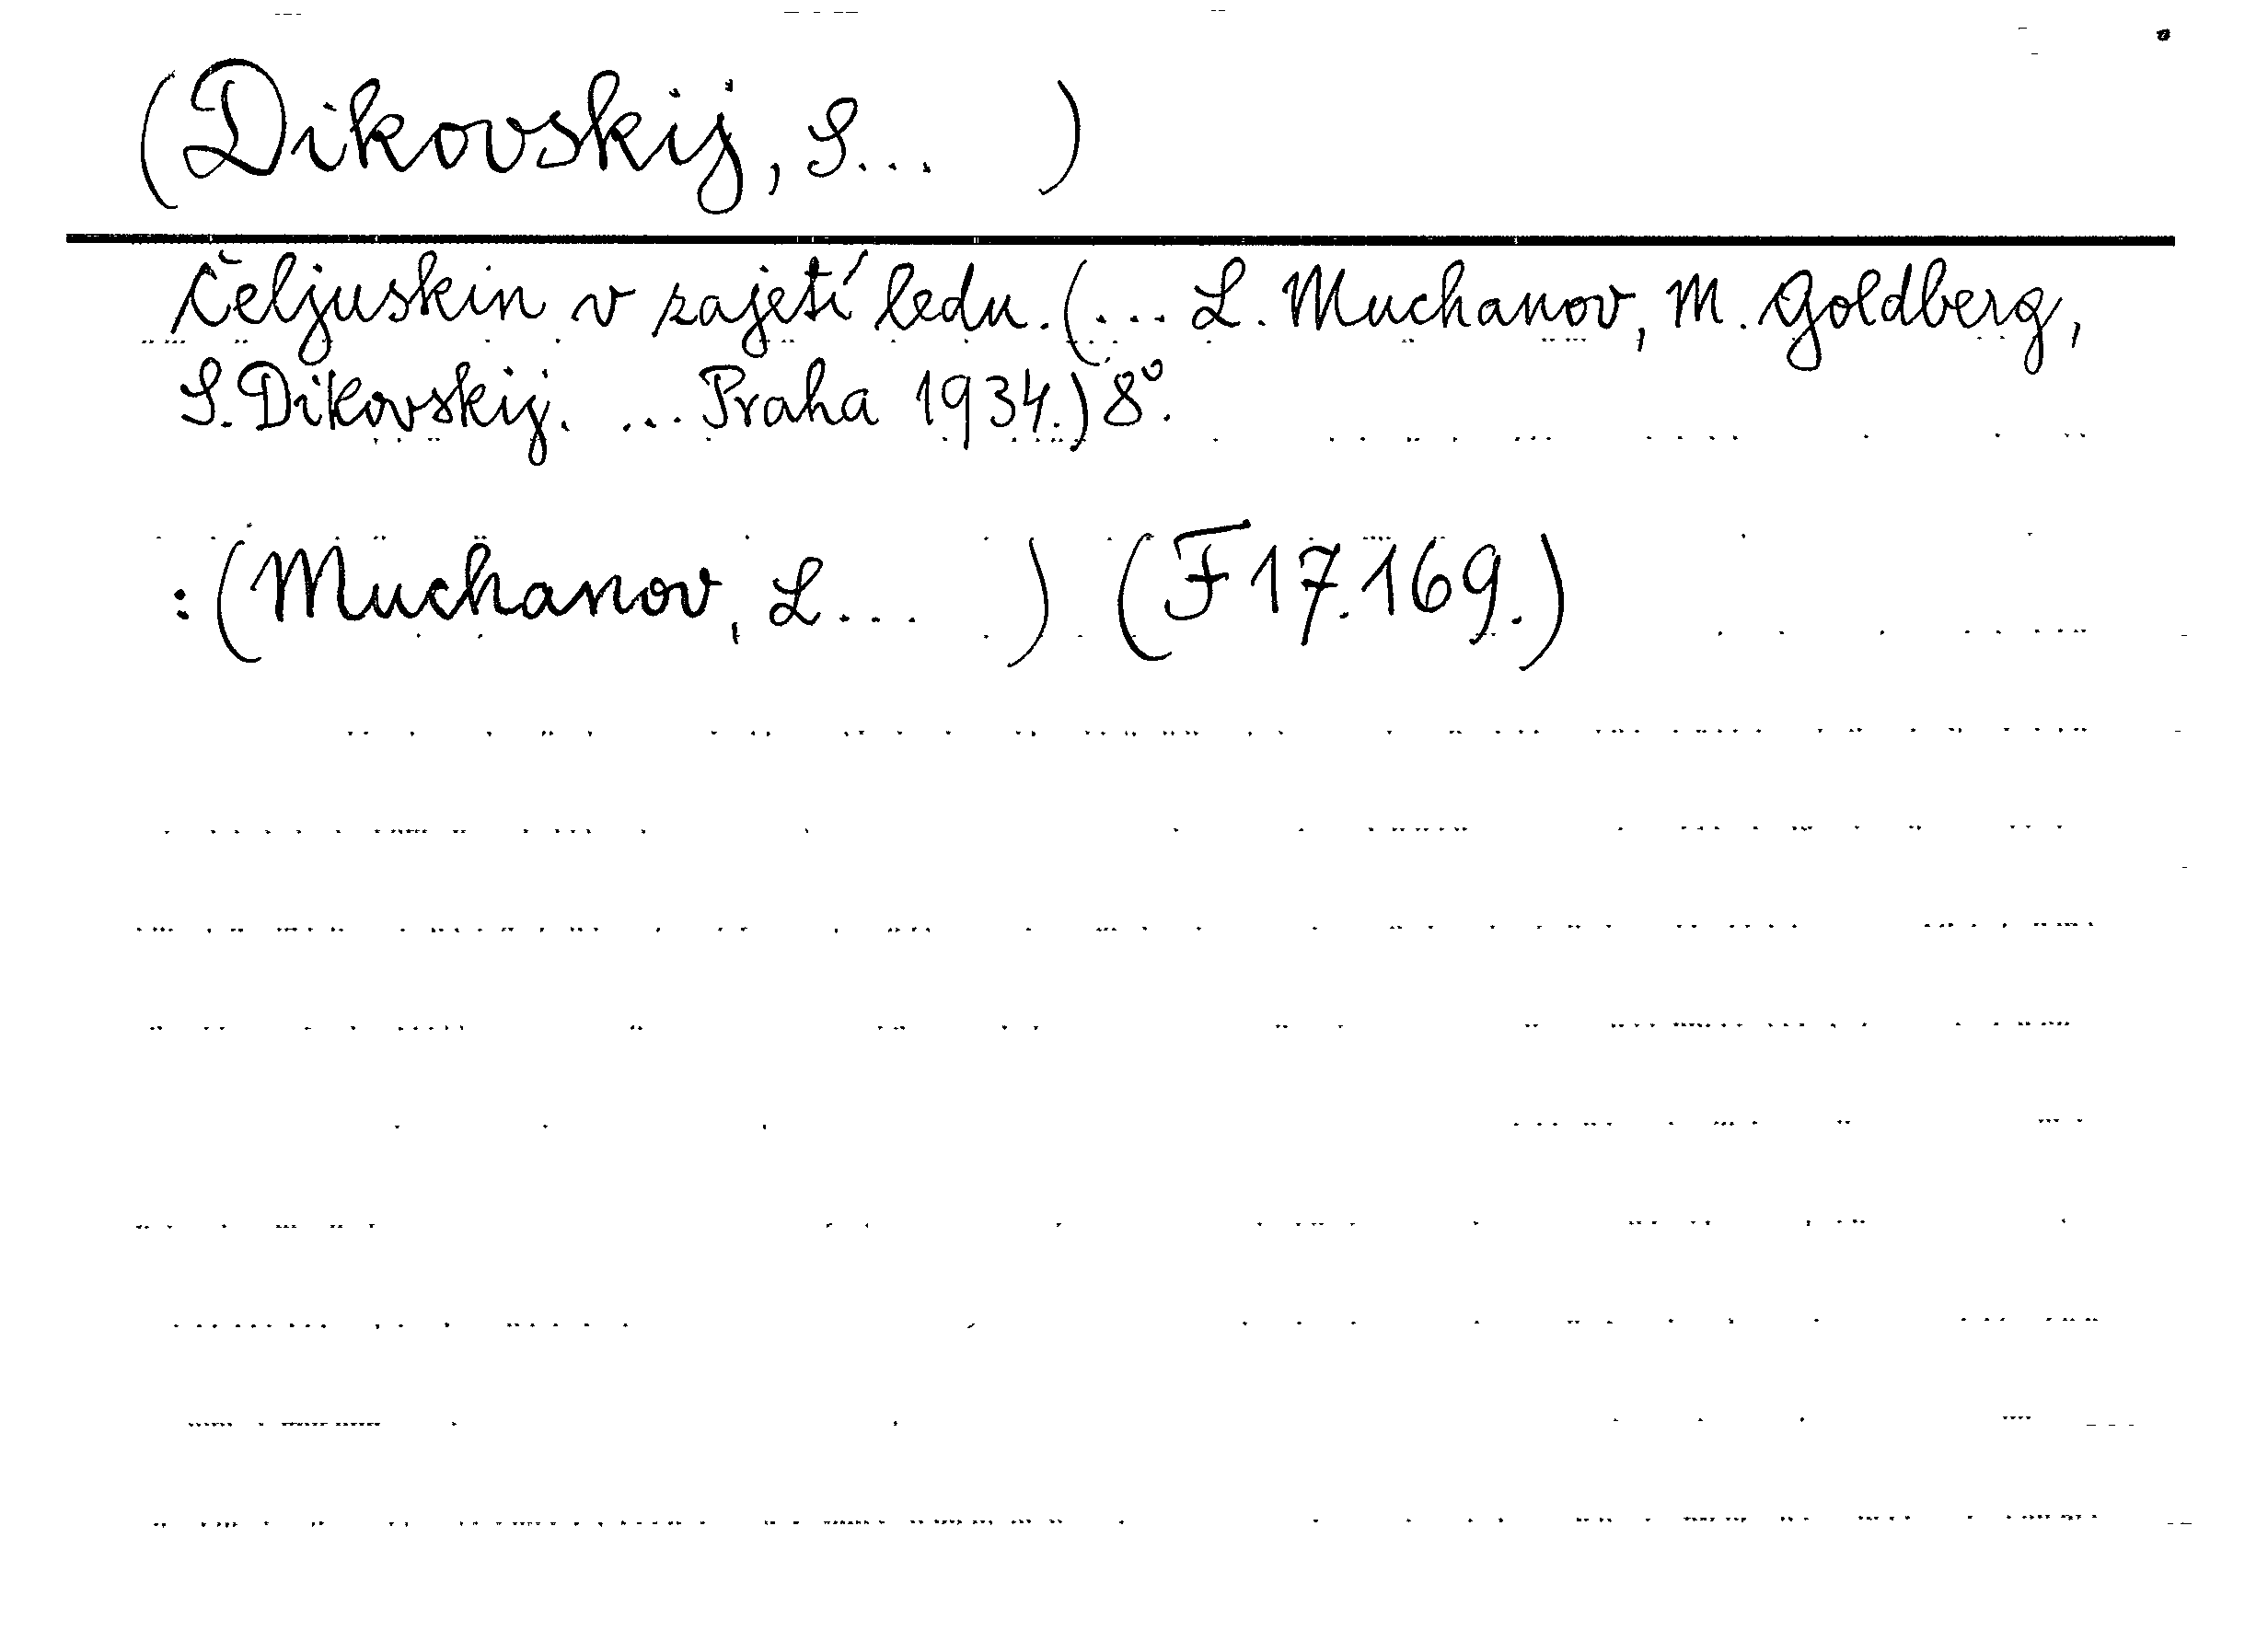 (Dikovskij, S... )
Čeljuskin v zajetí ledu. (... L. Muchanov, M. Goldberg,
S. Dikovskij. ... Praha 1934.) 8°.
: (Muchanov, L... ) (F 17.169.)